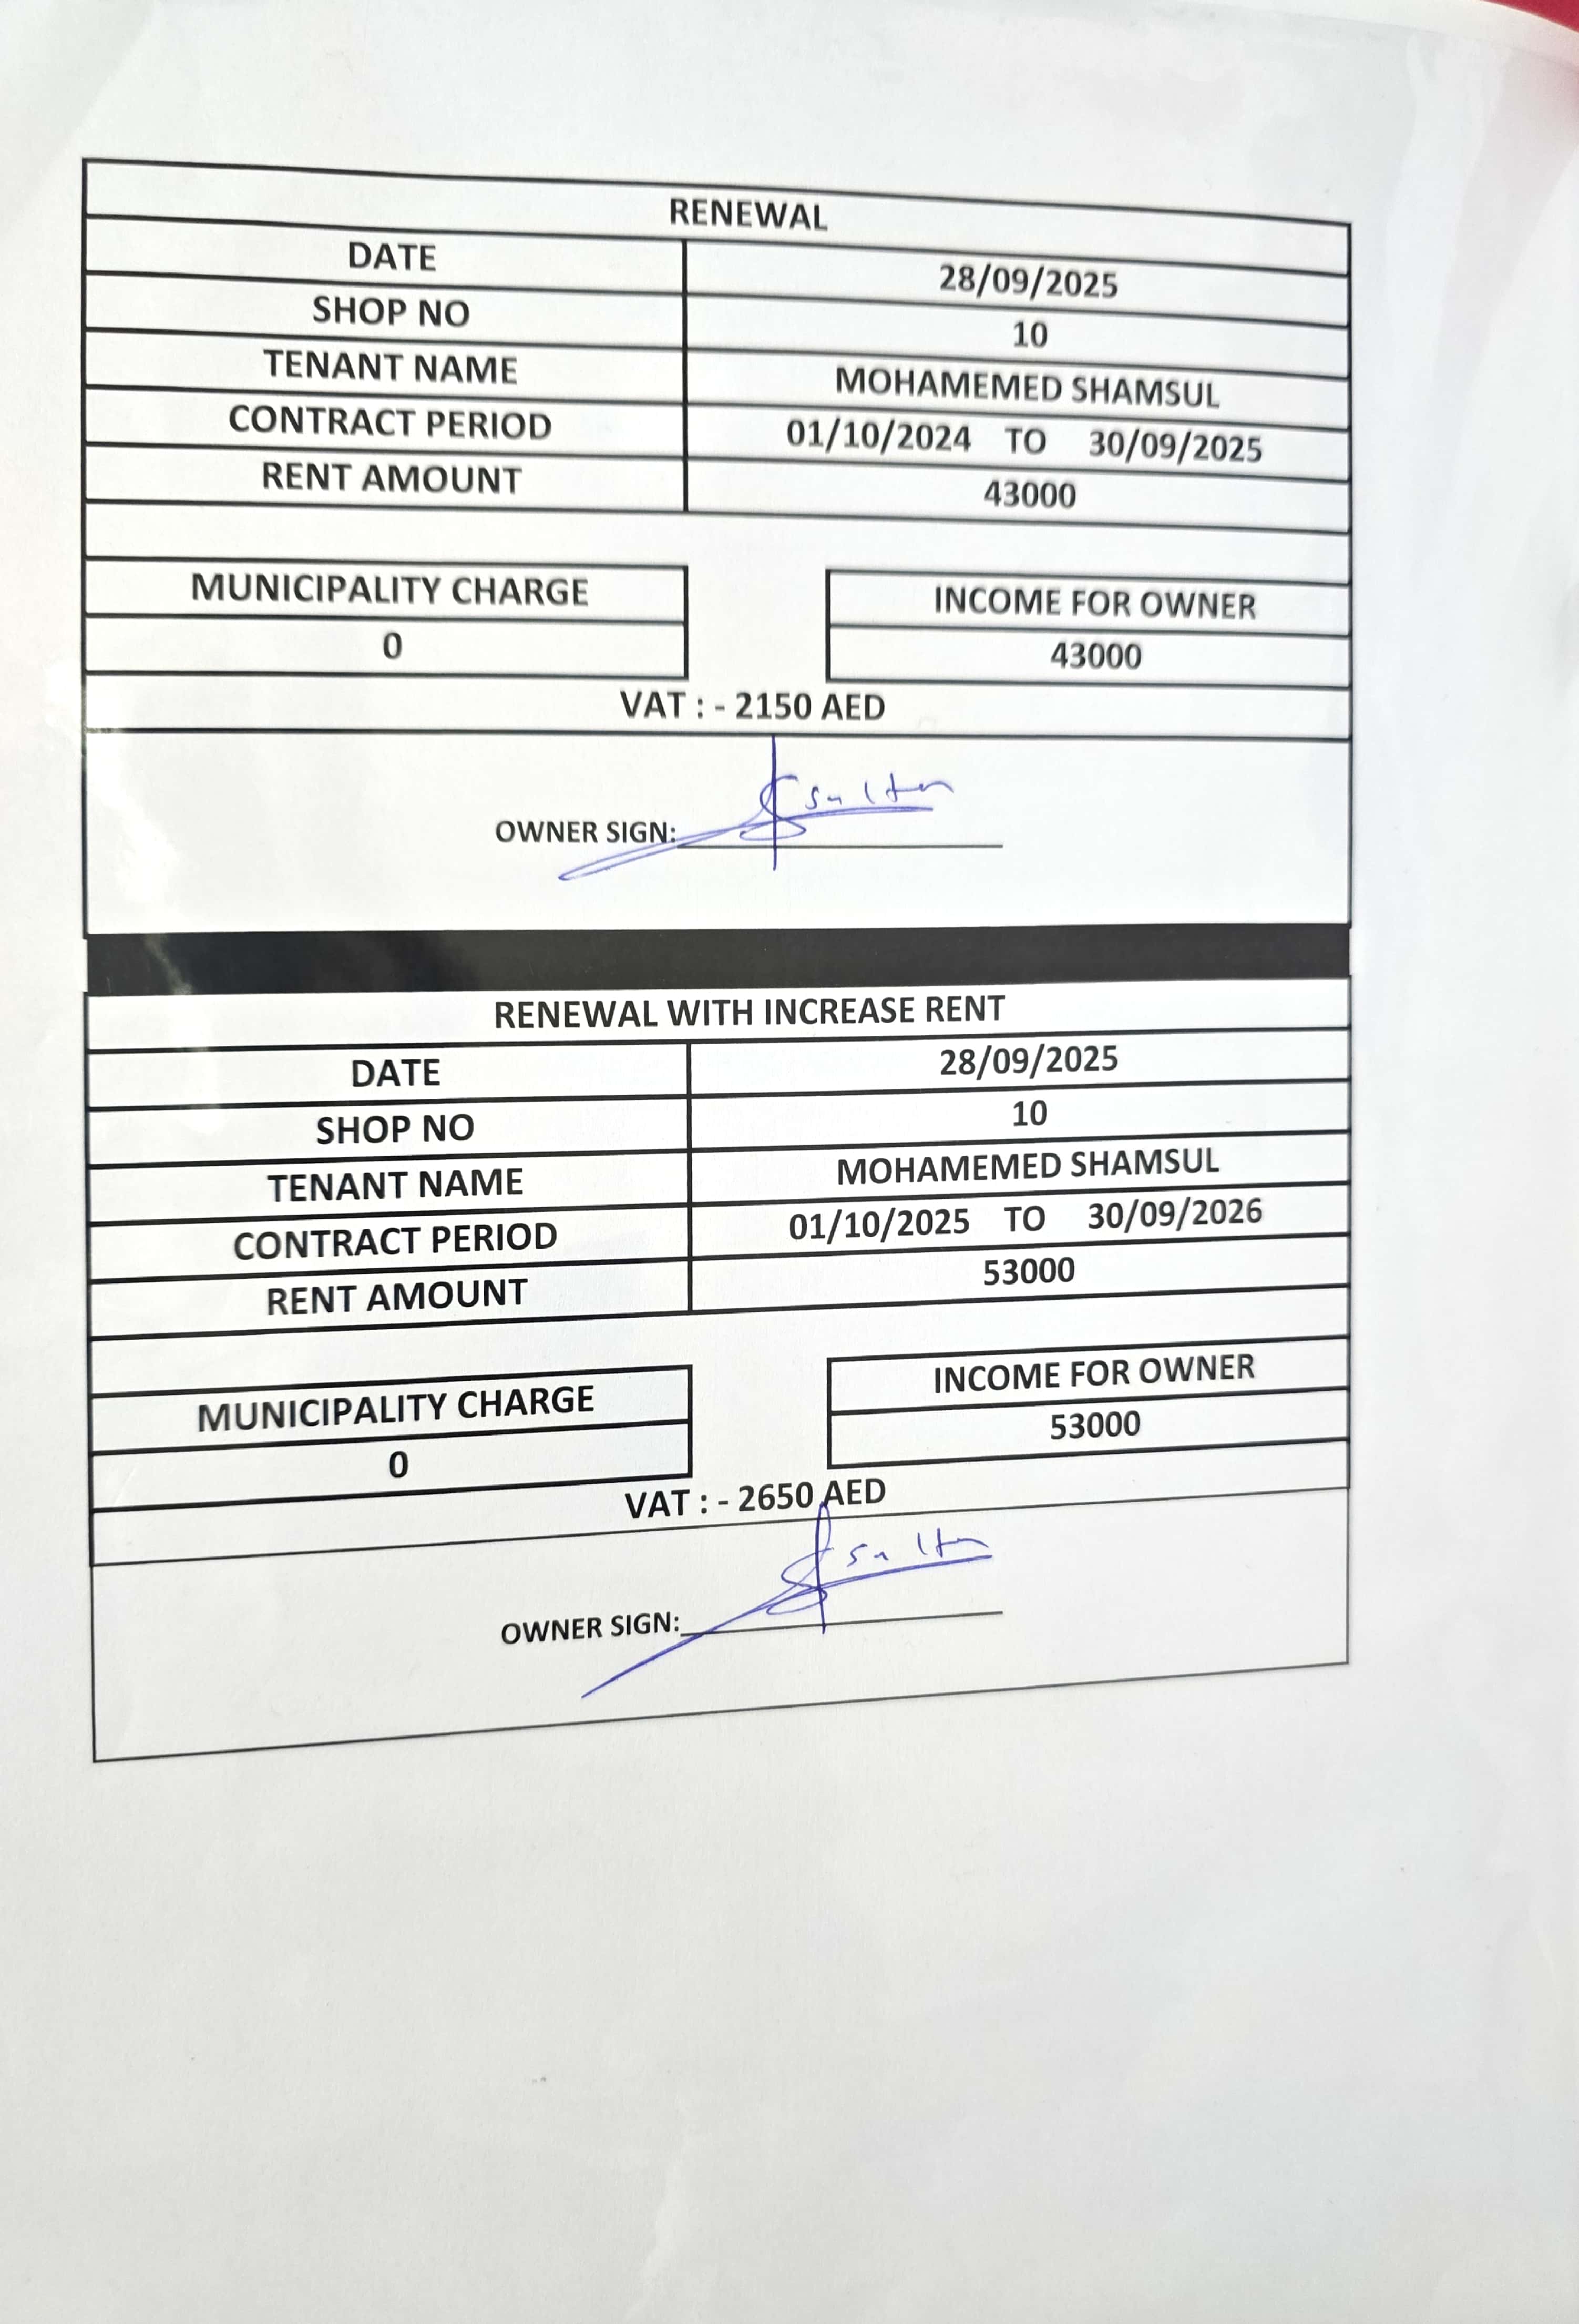 RENEWAL
DATE 28/09/2025
SHOP NO 10
TENANT NAME MOHAMEMED SHAMSUL
CONTRACT PERIOD 01/10/2024 TO 30/09/2025
RENT AMOUNT 43000
MUNICIPALITY CHARGE INCOME FOR OWNER
0 43000
VAT : - 2150 AED
OWNER SIGN:
RENEWAL WITH INCREASE RENT
DATE 28/09/2025
SHOP NO 10
TENANT NAME MOHAMEMED SHAMSUL
CONTRACT PERIOD 01/10/2025 TO 30/09/2026
RENT AMOUNT 53000
MUNICIPALITY CHARGE INCOME FOR OWNER
0 53000
VAT : - 2650 AED
OWNER SIGN: